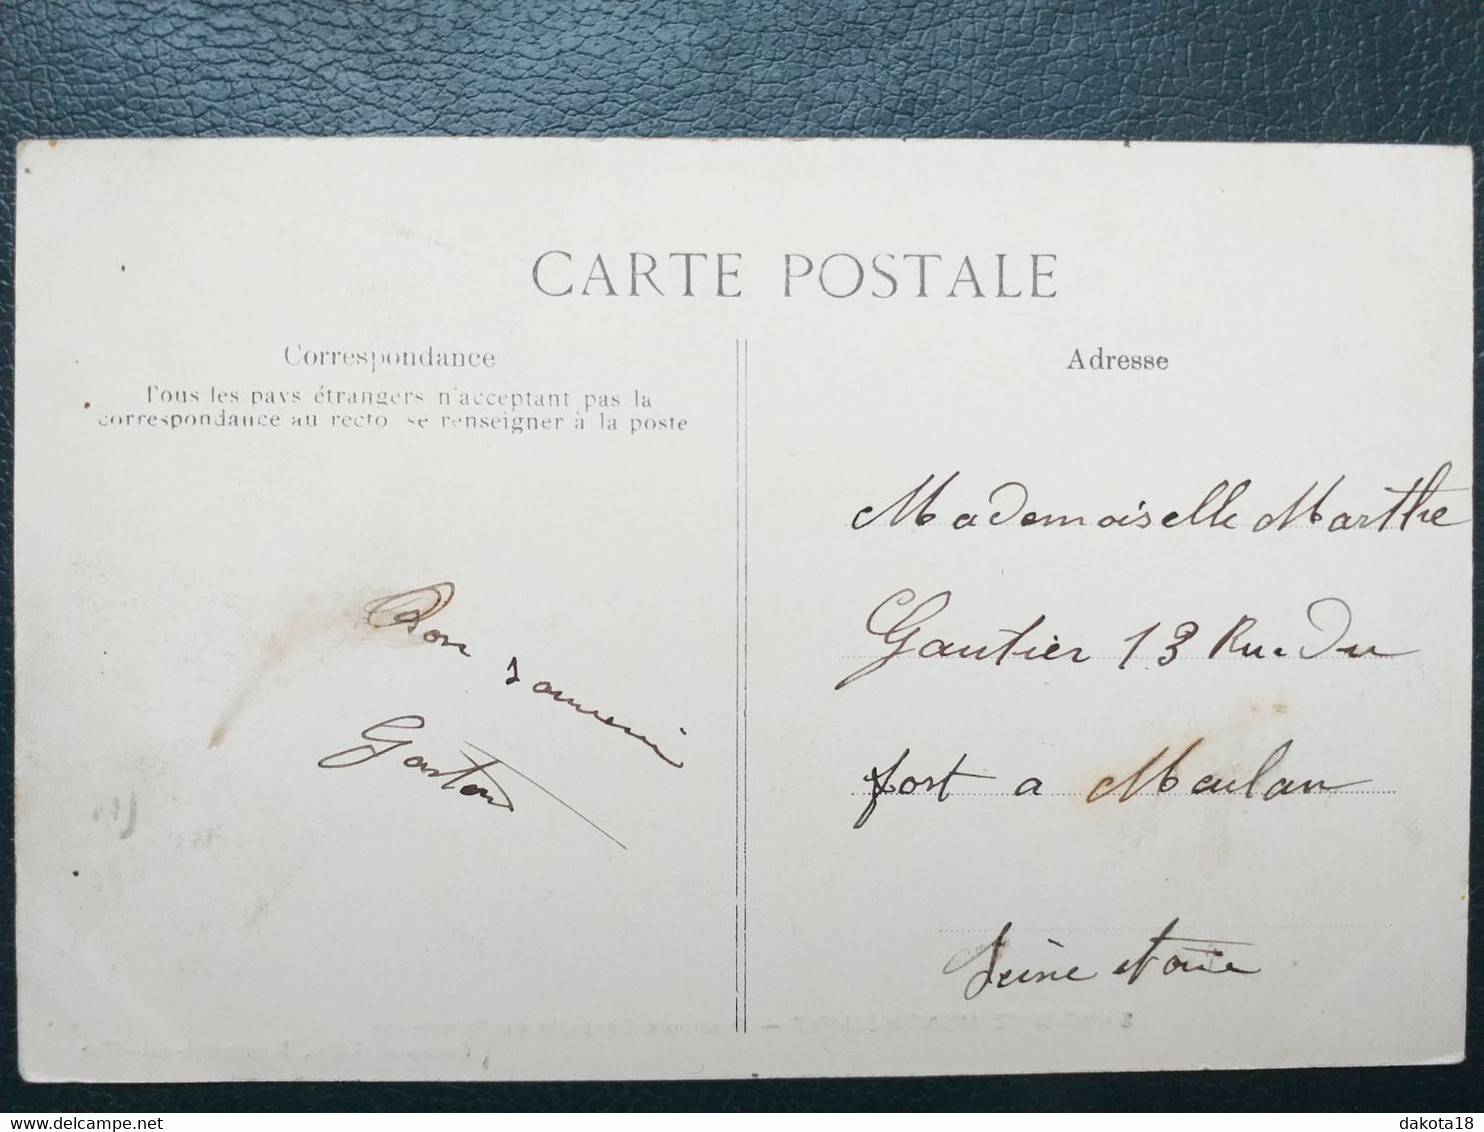 CARTE POSTALE
Correspondance
Tous les pays étrangers n'acceptant pas la
correspondance au recto se renseigner à la poste
Bon
souvenir
Gaston
Adresse
Mademoiselle Marthe
Gautier 13 Rue Du
fort a Meulan
Seine et oise
dakota18